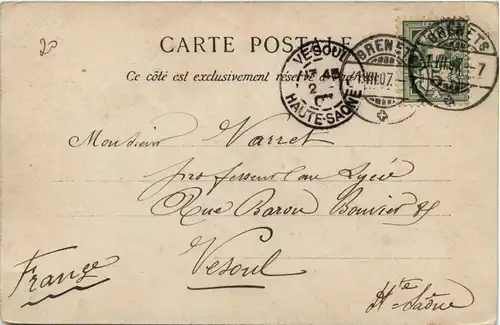 20
CARTE POSTALE
Ce côté est exclusivement réservé
VESOUL
2
HAUTE-SAONE
BRENETS
1.VII.07
BRENETS
1.VII.07
7
Monsieur Varret
professeur au Lycée
Rue Baron Bouvier
Vesoul
France
Hte-Saône